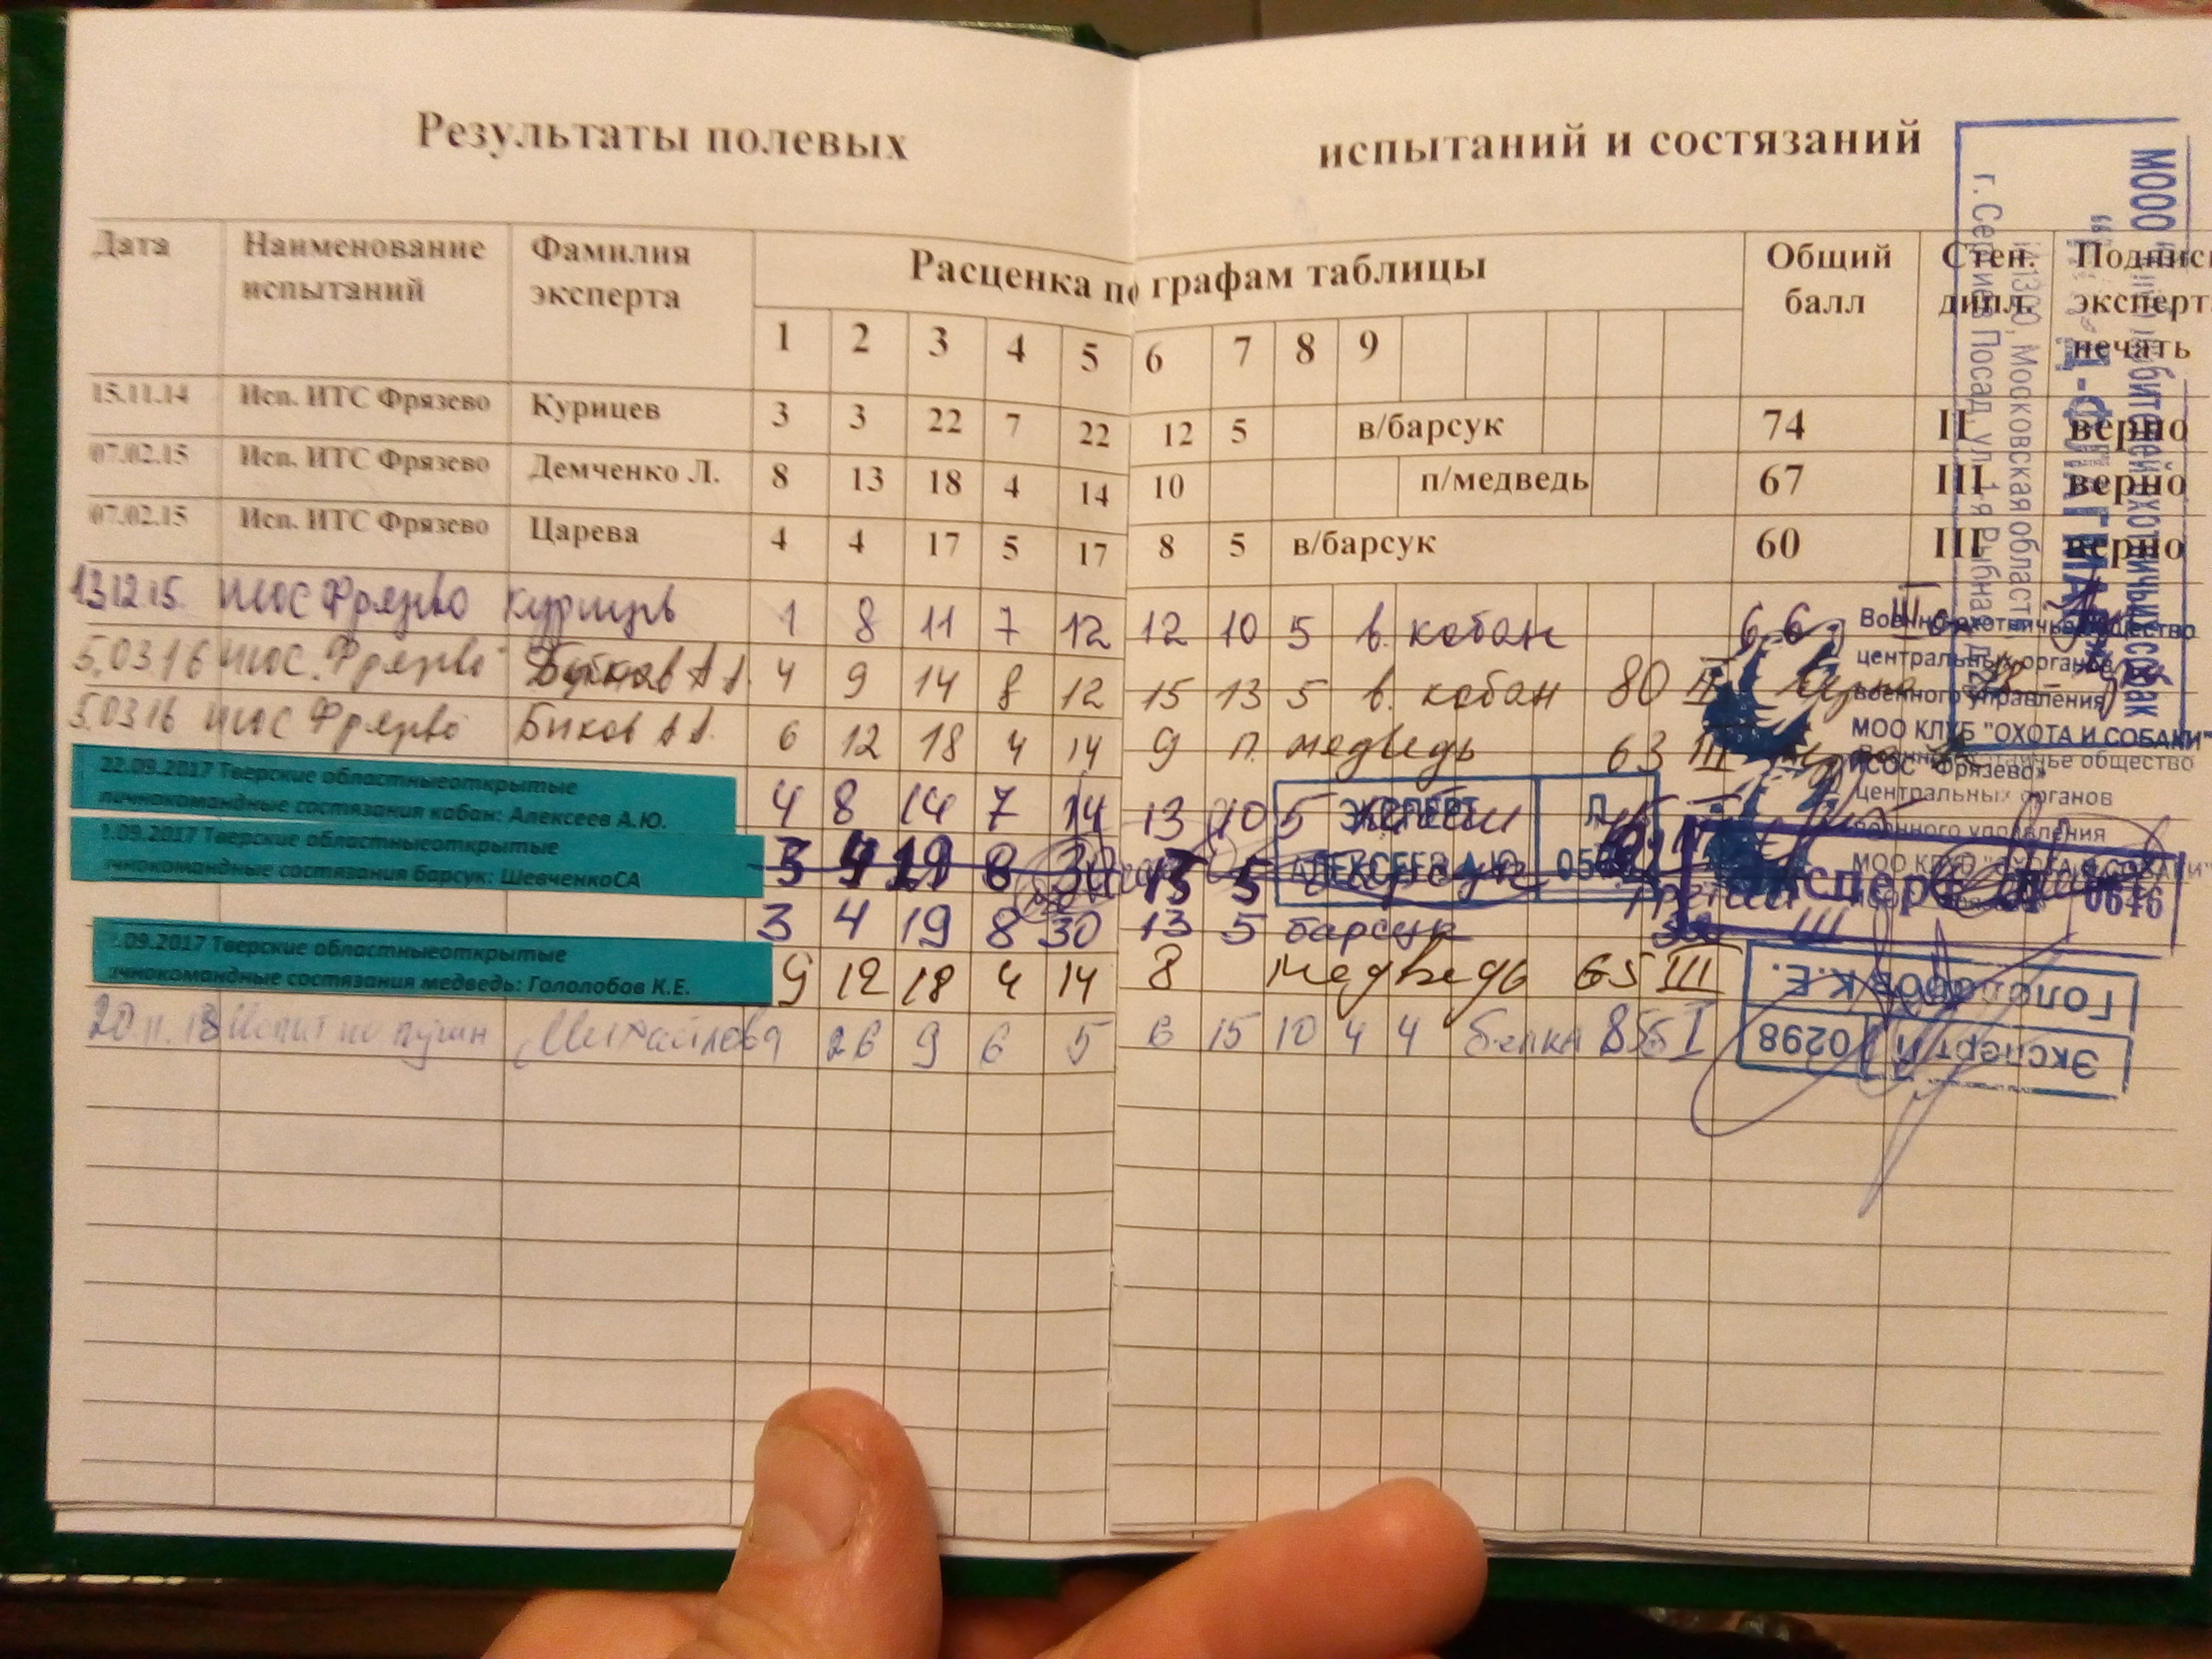 Результаты полевых испытаний и состязаний
Дата Наименование испытаний Фамилия эксперта Расценка по графам таблицы Общий балл Степ. дипл. Подпись эксперт. печать
1 2 3 4 5 6 7 8 9
15.11.14 Исп. ИТС Фрязево Курицев 3 3 22 7 22 12 5 в/барсук 74 II верно
07.02.15 Исп. ИТС Фрязево Демченко Л. 8 13 18 4 14 10 п/медведь 67 III верно
07.02.15 Исп. ИТС Фрязево Царева 4 4 17 5 17 8 5 в/барсук 60 III верно
13.12.15. ИСОС Фрязево Курицев 1 8 11 7 12 12 10 5 в. кабан 66 III
5.03.16 ИСОС. Фрязево Быков А А. 4 9 14 8 12 15 13 5 в. кабан 80 II
5.03.16 ИСОС Фрязево Быков А А. 6 12 18 4 14 9 п. медведь 63 III
22.09.2017 Тверские областныеоткрытые
личнокомандные состязания кабан: Алексеев А.Ю.
4 8 14 7 14 13 10 5 кабан
.09.2017 Тверские областныеоткрытые
чнокомандные состязания барсук: ШевченкоСА
3 4 19 8 30 13 5 барсук
3 4 19 8 30 13 5 барсук III
.09.2017 Тверские областныеоткрытые
чнокомандные состязания медведь: Гололобов К.Е.
9 12 18 4 14 8 медведь 65 III
20.11.18 Испыт по пушн Михайлова 9 26 9 6 5 6 15 10 4 4 белка 85б I
МООО
любителей охотничьих собак
"
141300, Московская область
г. Сергиев Посад, ул. 1-я Рыбная
Военно-охотничье общество
центральных органов
военного управления
МОО КЛУБ "ОХОТА И СОБАКИ"
ИСОС "Фрязево"
охотничье общество
центральных органов
военного управления
МОО КЛУБ "ОХОТА И СОБАКИ"
ЭКСПЕРТ
АЛЕКСЕЕВ А.Ю.
Эксперт
0646
Эксперт
0298
Гололобов К.Е.